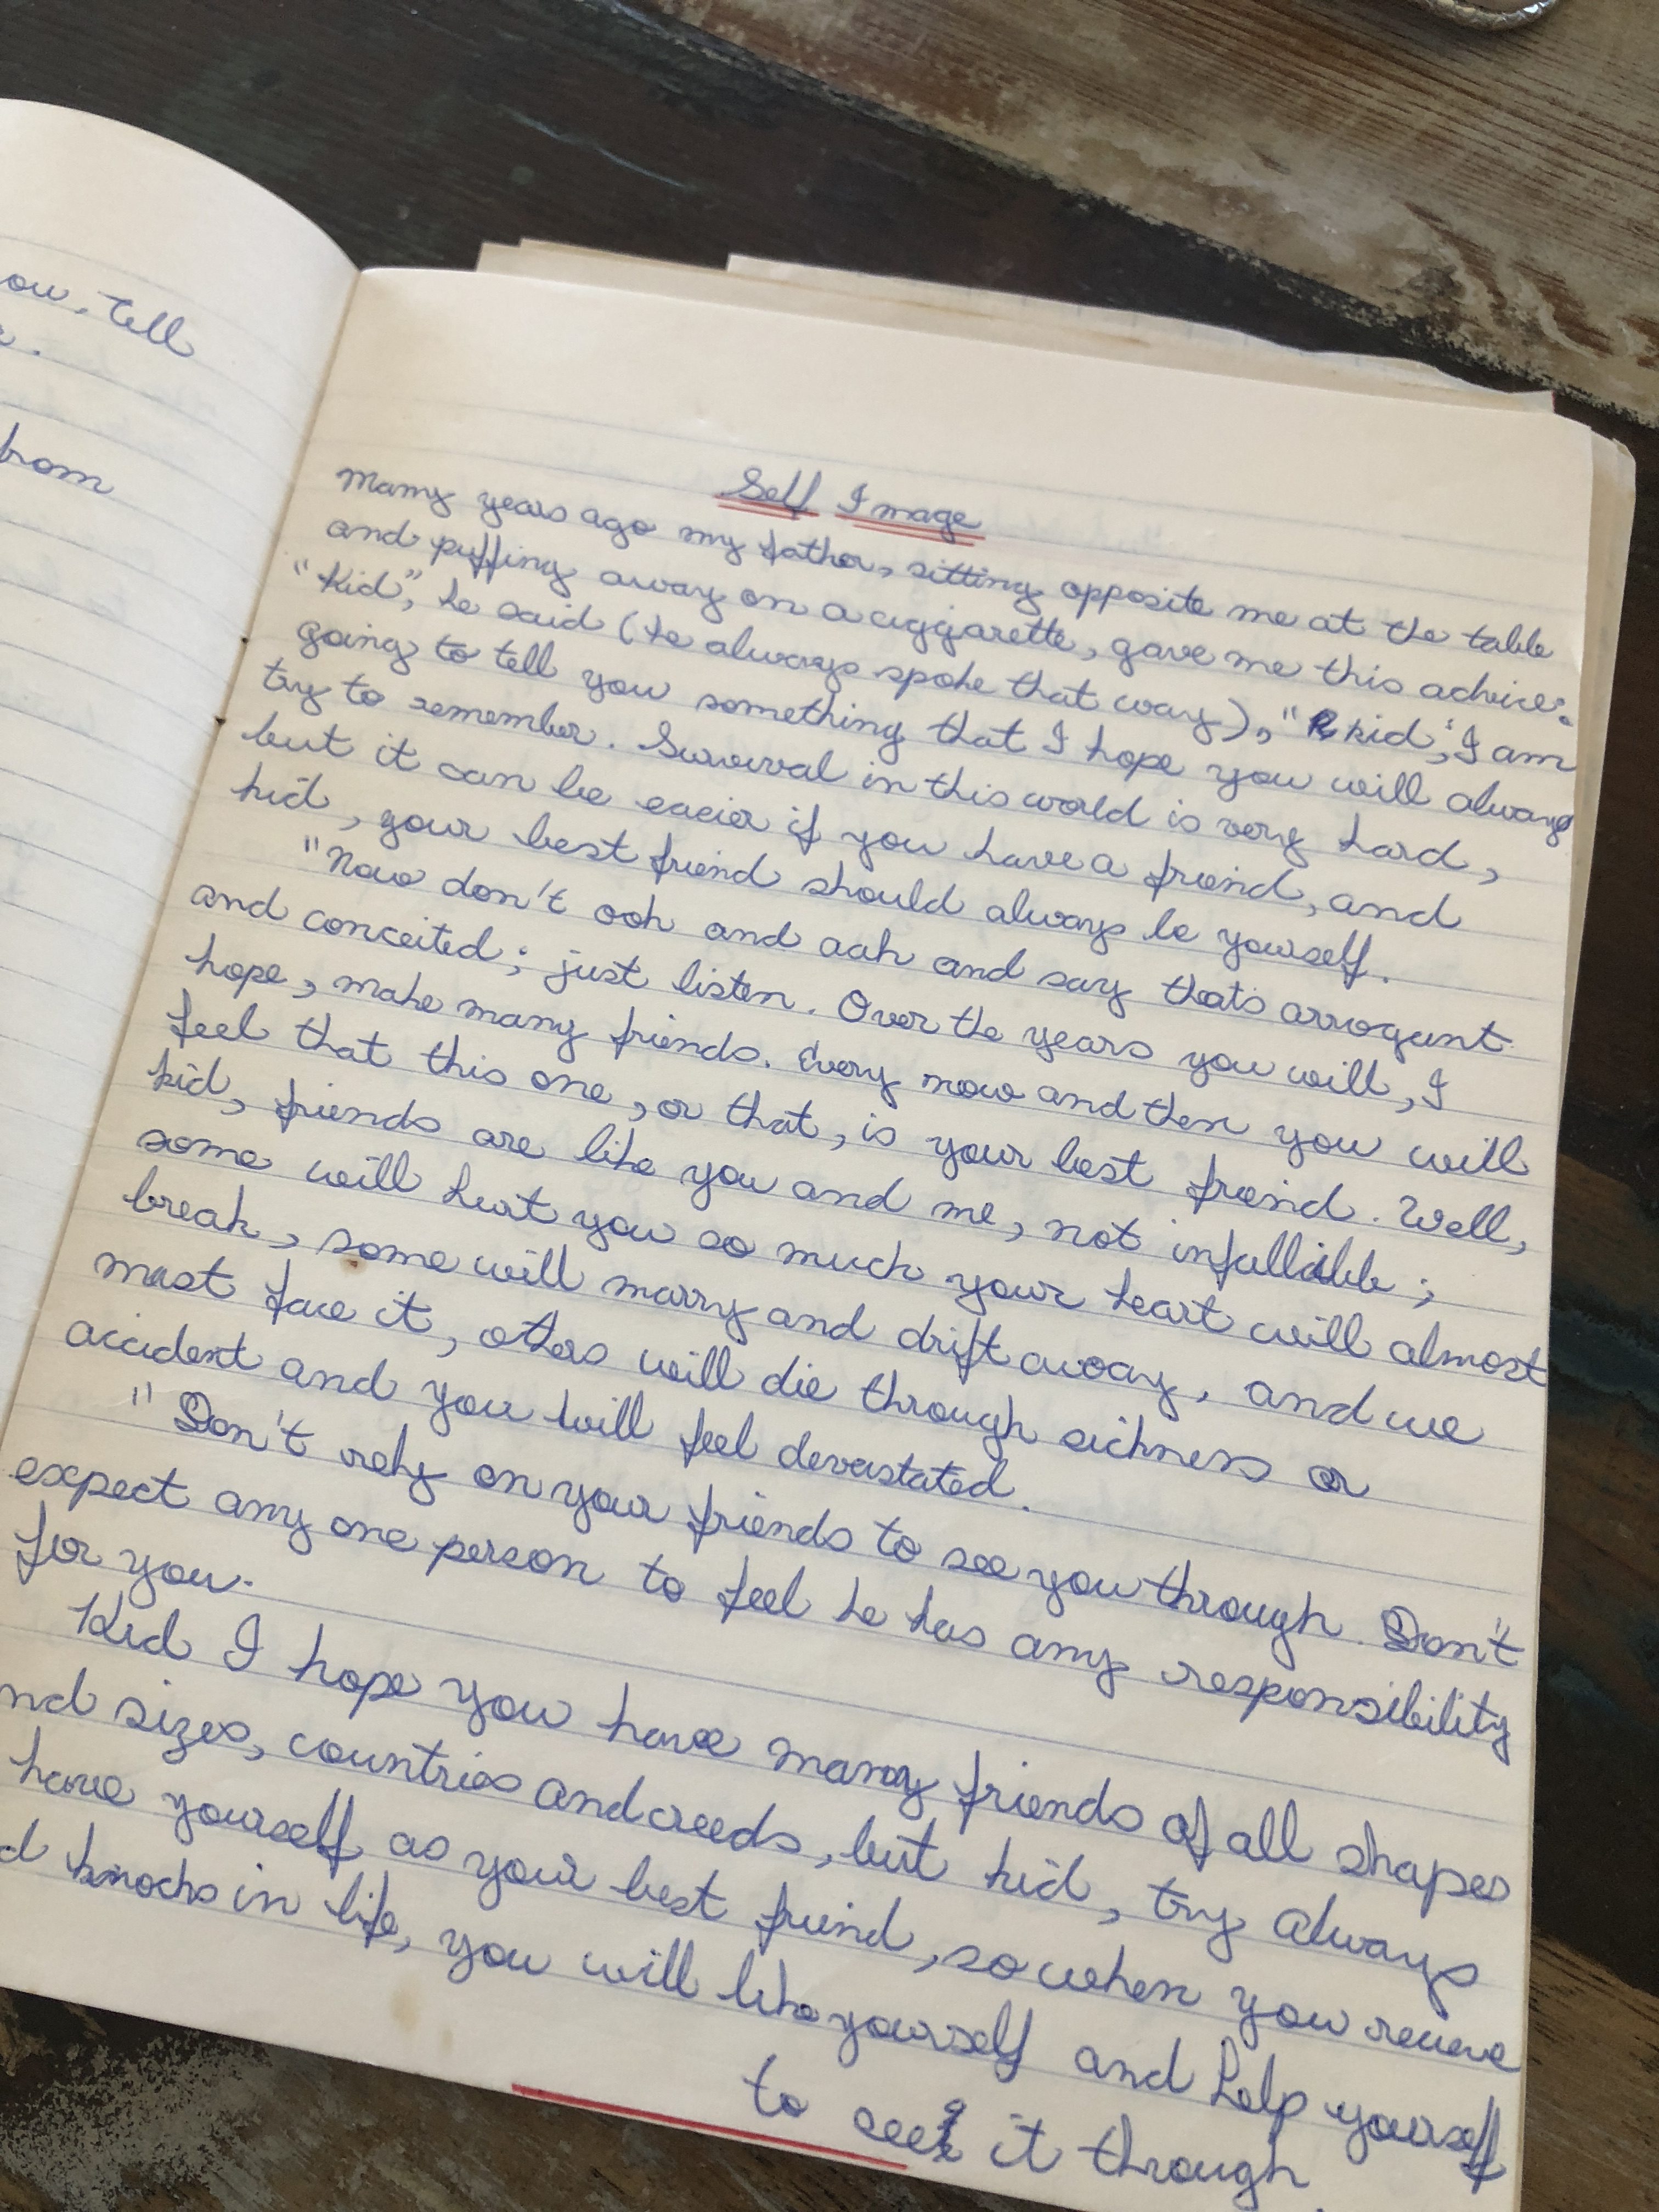 ow, tell
from
Self Image
Many years ago my father, sitting opposite me at the table
and puffing away on a ciggarette, gave me this advice:
"Kid", he said (he always spoke that way), "kid", I am
going to tell you something that I hope you will always
try to remember. Survival in this world is very hard,
but it can be easier if you have a friend, and
kid, your best friend should always be yourself.
"Now don't ooh and aah and say that's arrogant
and conceited; just listen. Over the years you will, I
hope, make many friends. Every now and then you will
feel that this one, or that, is your best friend. Well,
kid, friends are like you and me, not infallible;
some will hurt you so much your heart will almost
break, some will marry and drift away, and we
must face it, others will die through sickness or
accident and you will feel devastated.
"Don't rely on your friends to see you through. Don't
expect any one person to feel he has any responsibility
for you.
Kid I hope you have many friends of all shapes
nd sizes, countries and creeds, but kid, try always
have yourself as your best friend, so when you recieve
d knocks in life, you will like yourself and help yourself
to see it through